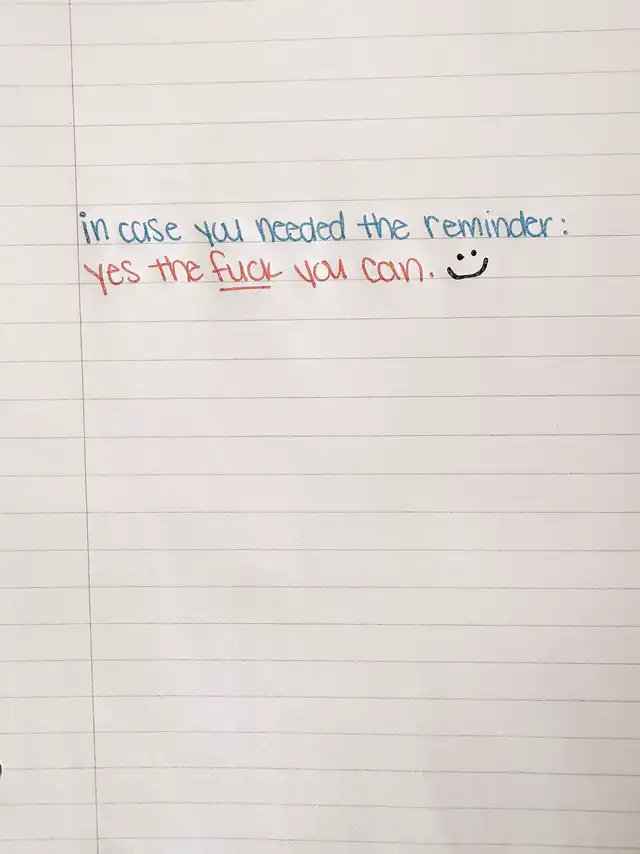 in case you needed the reminder:
yes the fuck you can.